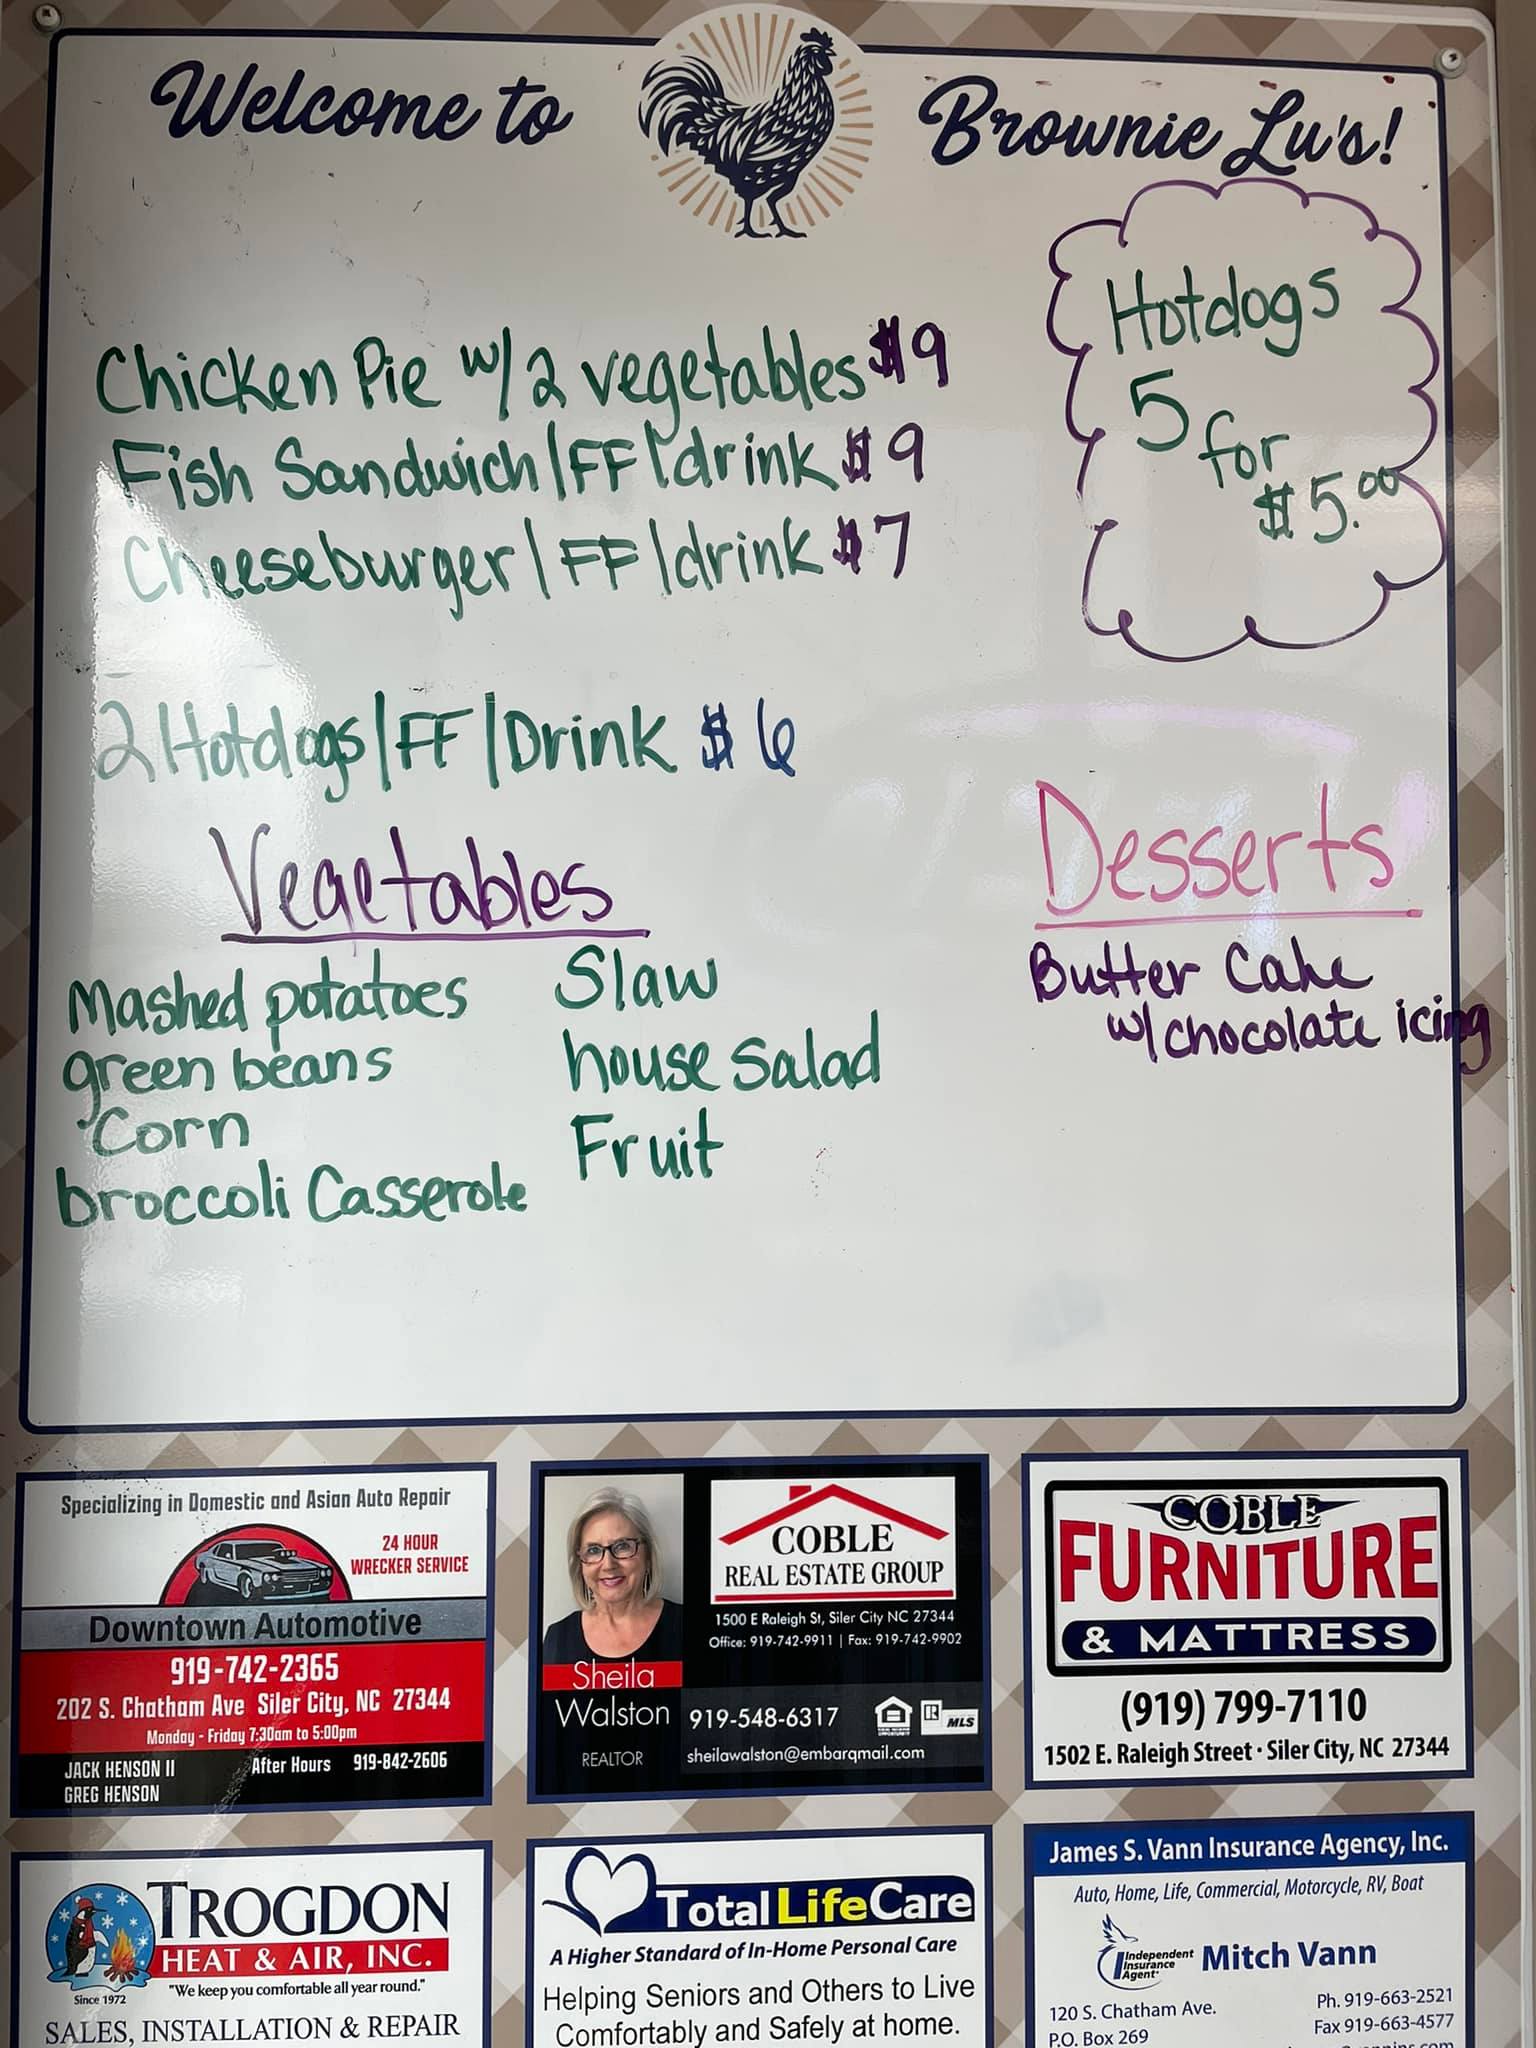 Welcome to Brownie Lu's!
Hotdogs
5 for
$5.00
Chicken Pie w/ 2 vegetables $9
Fish Sandwich/FF/drink $9
Cheeseburger/FF/drink $7
2 Hotdogs/FF/Drink $6
Vegetables
Mashed potatoes
green beans
Corn
broccoli Casserole
Slaw
house salad
Fruit
Desserts
Butter Cake
w/ chocolate icing
Specializing in Domestic and Asian Auto Repair
24 HOUR
WRECKER SERVICE
Downtown Automotive
919-742-2365
202 S. Chatham Ave Siler City, NC 27344
Monday - Friday 7:30am to 5:00pm
JACK HENSON II
GREG HENSON
After Hours 919-842-2606
COBLE
REAL ESTATE GROUP
1500 E Raleigh St, Siler City NC 27344
Office: 919-742-9911 | Fax: 919-742-9902
Sheila
Walston
REALTOR
919-548-6317
MLS
sheilawalston@embarqmail.com
COBLE
FURNITURE
& MATTRESS
(919) 799-7110
1502 E. Raleigh Street · Siler City, NC 27344
TROGDON
HEAT & AIR, INC.
"We keep you comfortable all year round."
Since 1972
SALES, INSTALLATION & REPAIR
Total LifeCare
A Higher Standard of In-Home Personal Care
Helping Seniors and Others to Live
Comfortably and Safely at home.
James S. Vann Insurance Agency, Inc.
Auto, Home, Life, Commercial, Motorcycle, RV, Boat
Independent
Insurance
Agent
Mitch Vann
120 S. Chatham Ave.
P.O. Box 269
Ph. 919-663-2521
Fax 919-663-4577